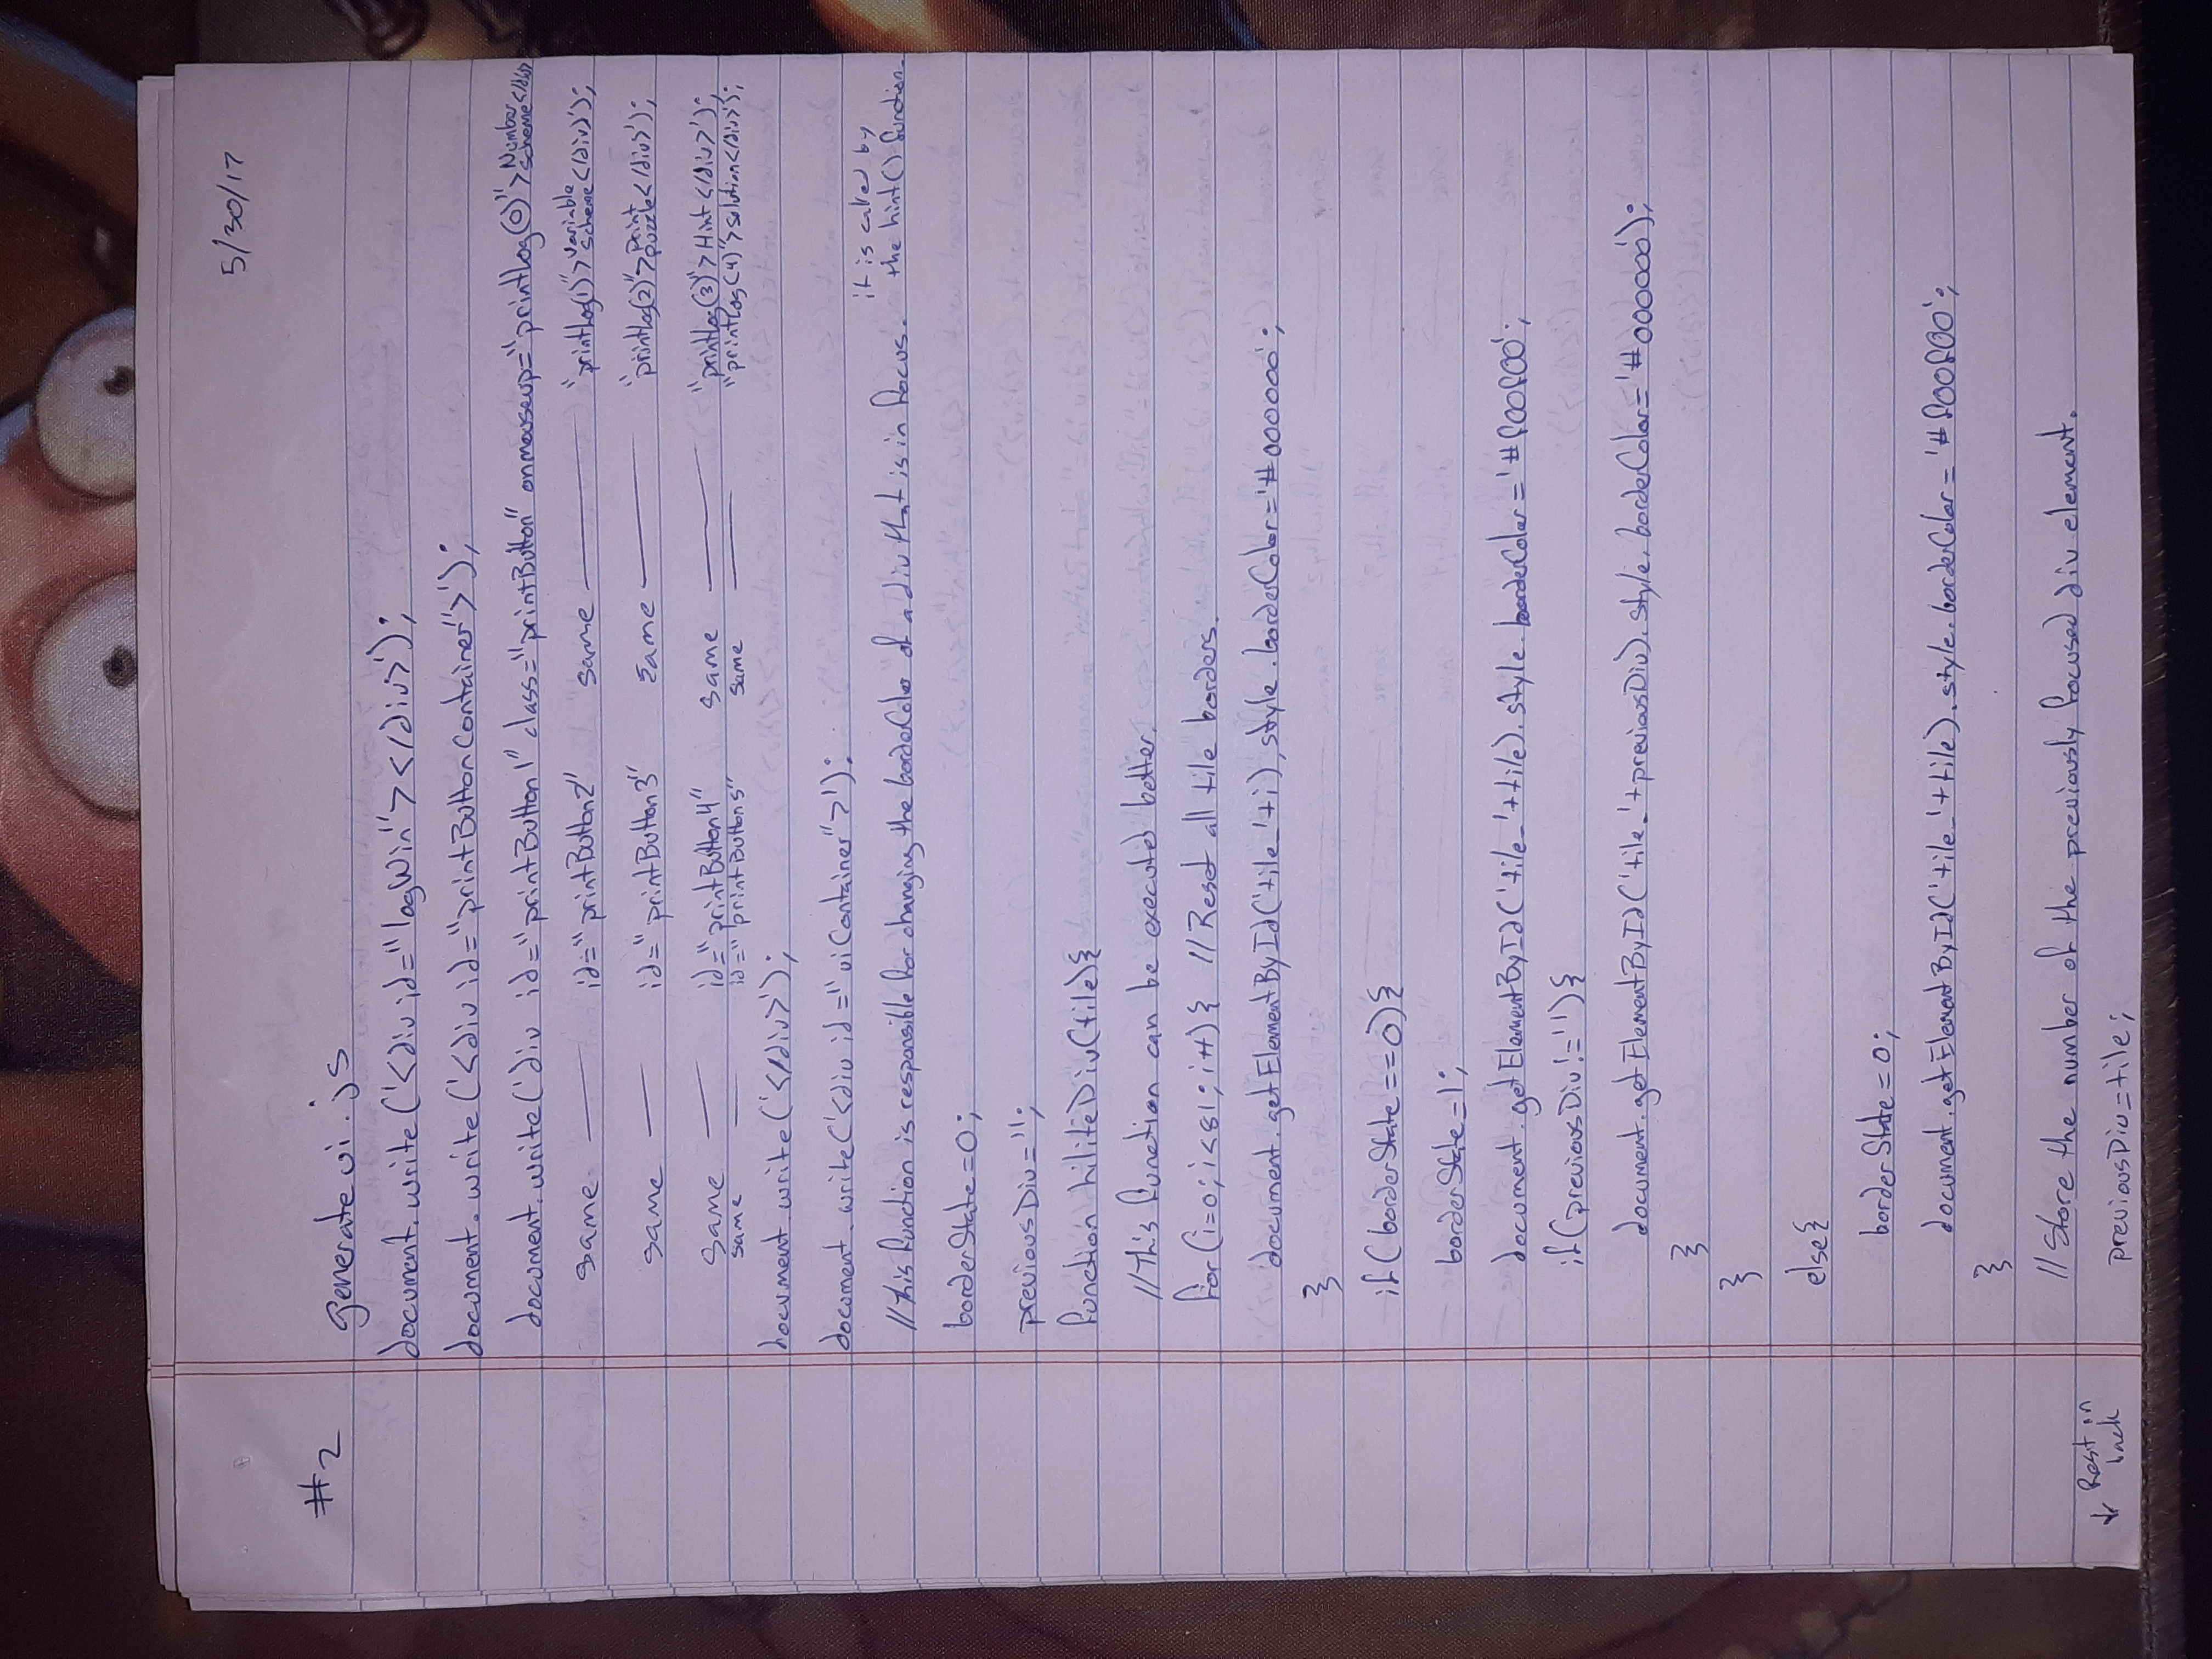 5/30/17
#2 generate ui.js
document.write('<div id="logWin"></div>');
document.write('<div id="printButtonContainer">');
document.write('div id="printButton1" class="printButton" onmouseup="printLog(0)">Number Scheme</div>
same — id="printButton2" same — "printLog(1)">Variable Scheme</div>');
same — id="printButton3" same — "printLog(2)">Print Puzzle</div>');
same — id="printButton4" same — "printLog(3)">Hint</div>');
same — id="printButton5" same — "printLog(4)">Solution</div>');
document.write('</div>');
document.write('<div id="uiContainer">');
//This function is responsible for changing the borderColor of a div that is in focus. it is called by the hint() function.
borderState=0;
previousDiv='';
function hiliteDiv(tile){
//This function can be executed better.
for(i=0;i<81;i++){ //Reset all tile borders.
document.getElementById('tile_'+i).style.borderColor='#000000';
}
if(borderState==0){
borderState=1;
document.getElementById('tile_'+tile).style.borderColor='#f00f00';
if(previousDiv!=''){
document.getElementById('tile_'+previousDiv).style.borderColor='#000000');
}
}
else{
borderState=0;
document.getElementById('tile_'+tile).style.borderColor='#f00f00';
}
//Store the number of the previously focused div element.
previousDiv=tile;
↓ Rest on
back